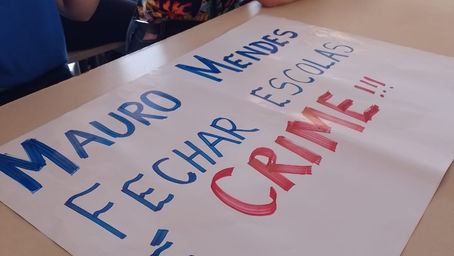 MAURO MENDES
FECHAR ESCOLAS
É CRIME!!!